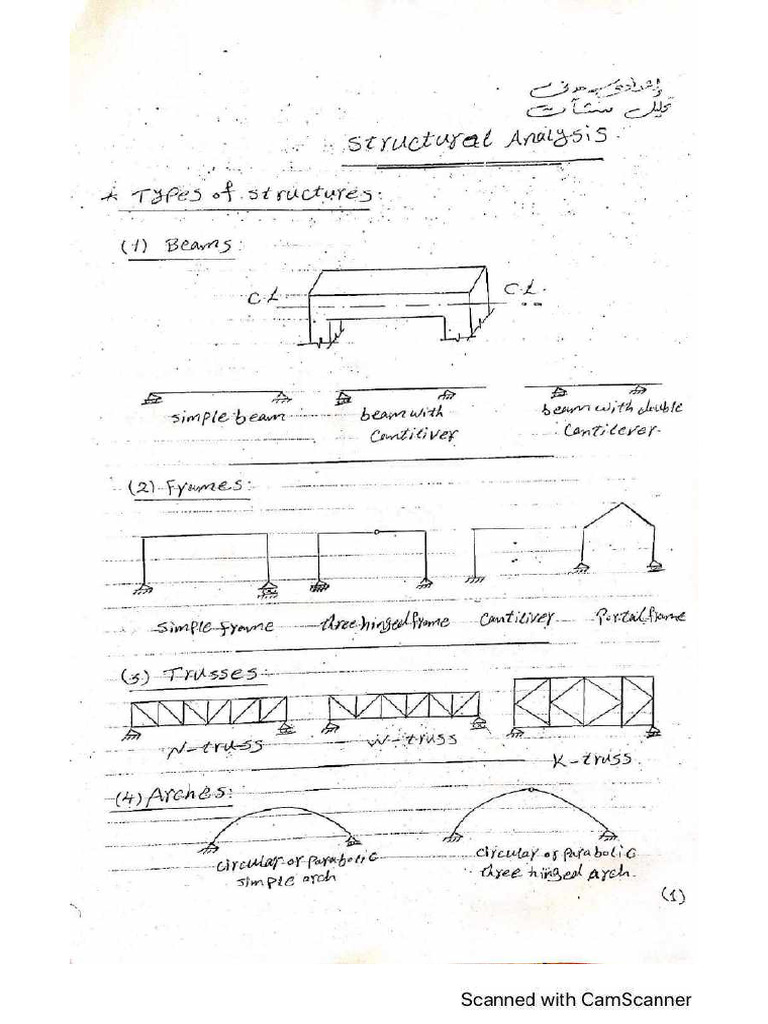 تحليل منشآت
Structural Analysis.
* Types of structures:
(1) Beams:
C.L
C.L.
simple beam
beam with
Cantiliver
beam with double
Cantilever.
(2) Frames:
Simple frame
three hinged frame
Cantiliver
Portal frame
(3) Trusses:
N-truss
W-truss
K-truss
(4) Arches:
circular or parabolic
simple arch
circular or parabolic
three hinged arch.
(1)
Scanned with CamScanner